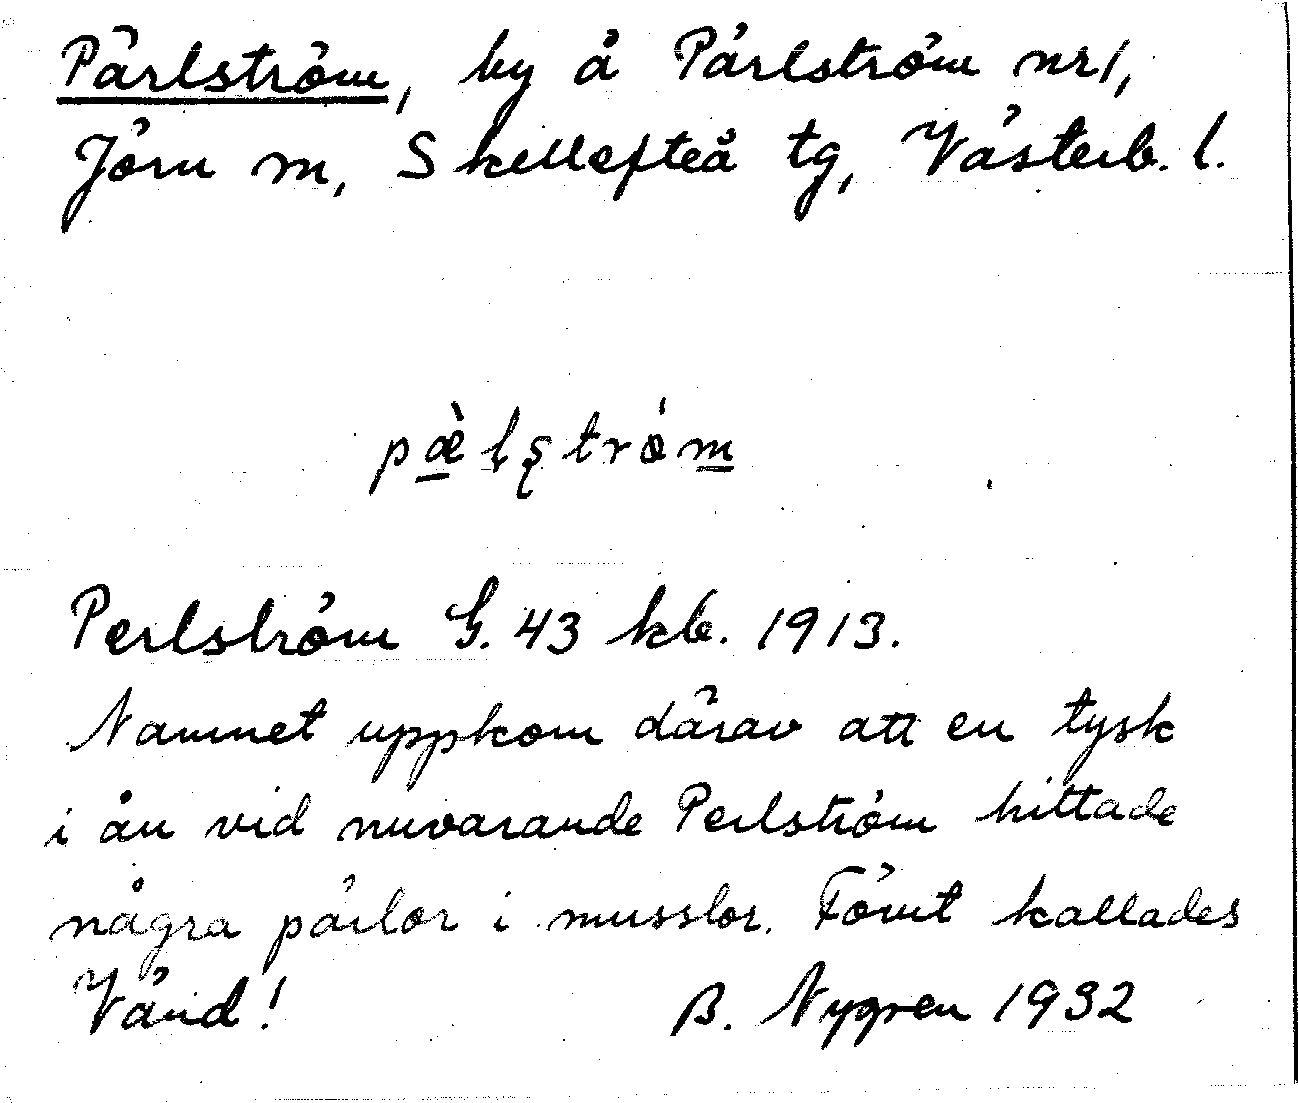 Pärlström, by å Pärlström nr 1,
Jörn sn, Skellefteå tg, Västerb. l.
pæ̀lştrö́m
Perlström G. 43 kb. 1913.
Namnet uppkom därav att en tysk
i ån vid nuvarande Perlström hittade
några pärlor i musslor. Förut kallades
Vänd! B. Nygren 1932